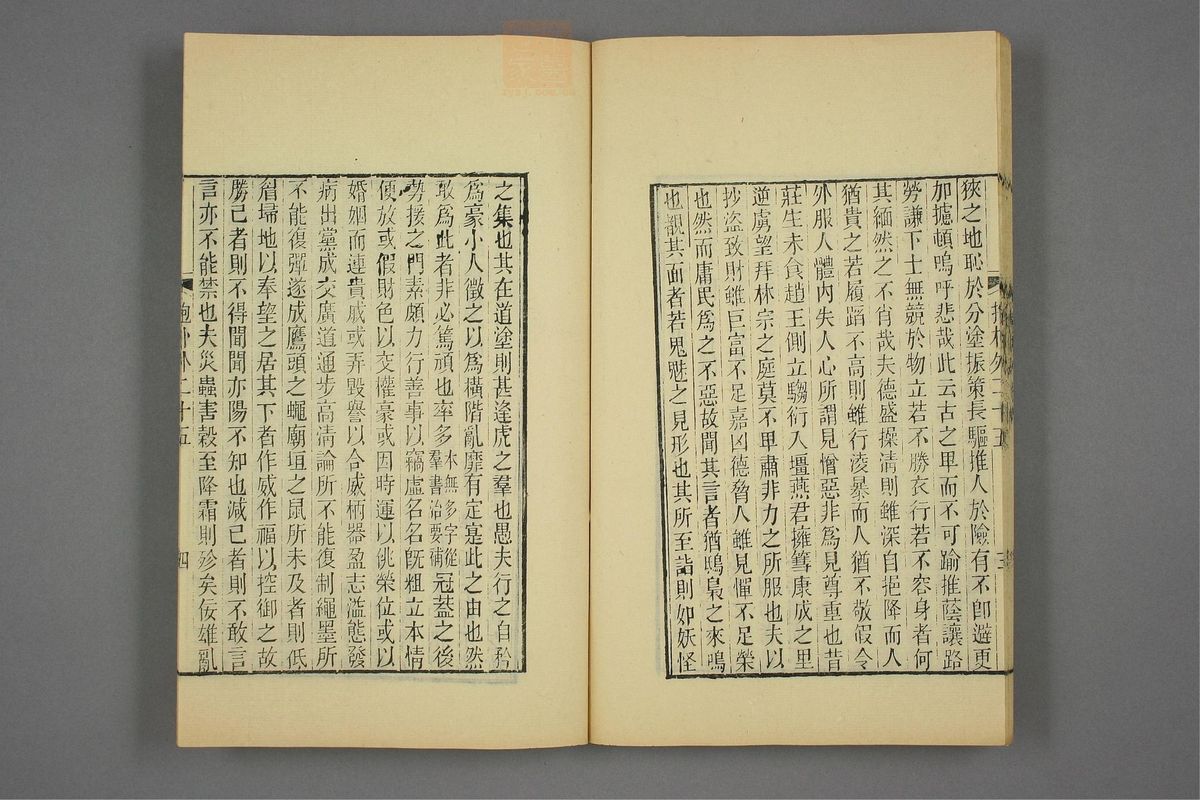 狹之地恥於分塗振策長驅推人於險有不卽避更
加攄頓嗚呼悲哉此云古之卑而不可踰推蔭讓路
勞謙下士無競於物立若不勝衣行若不容身者何
其緬然之不肖哉夫德盛操清則雖深自挹降而人
猶貴之若履蹈不高則雖行淩暴而人猶不敬假令
外服人體內失人心所謂見憎惡非爲見尊重也昔
莊生未食趙王側立騶衍入壃燕君擁篲康成之里
逆虜望拜林宗之庭莫不卑肅非力之所服也夫以
抄盜致財雖巨富不足嘉凶德脅人雖見憚不足榮
也然而庸民爲之不惡故聞其言者猶鴟梟之來鳴
也覩其面者若鬼魅之見形也其所至詣則如妖怪
之集也其在道塗則甚逢虎之羣也愚夫行之自矜
爲豪小人徵之以爲橫階亂靡有定寔此之由也然
敢爲此者非必篤頑也率多本無多字從羣書治要補冠蓋之後
勢援之門素頗力行善事以竊虛名名旣粗立本情
便放或假財色以交權豪或因時運以佻榮位或以
婚姻而連貴戚或弄毀譽以合威柄器盈志溢態發
病出黨成交廣道通步高清論所不能復制繩墨所
不能復彈遂成鷹頭之蠅廟垣之鼠所未及者則低
眉埽地以奉望之居其下者作威作福以控御之故
勝己者則不得聞聞亦陽不知也減己者則不敢言
言亦不能禁也夫災蟲害穀至降霜則殄矣佞雄亂
抱朴外二十五
四